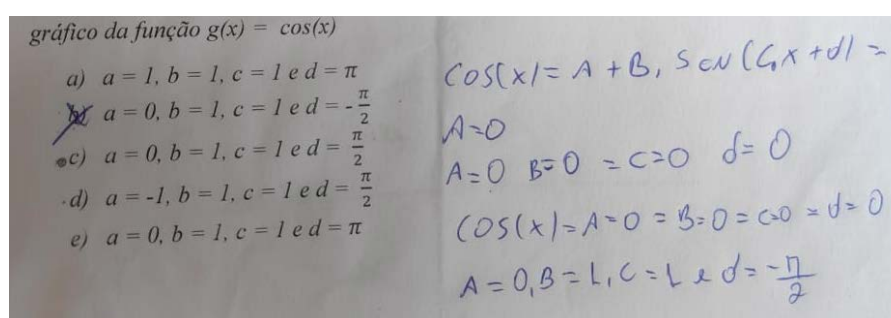 gráfico da função g(x) = cos(x)
a) a = 1, b = 1, c = 1 e d = π
b) a = 0, b = 1, c = 1 e d = -π/2
c) a = 0, b = 1, c = 1 e d = π/2
d) a = -1, b = 1, c = 1 e d = π/2
e) a = 0, b = 1, c = 1 e d = π
COS(x)= A + B, SEN (C,x + d) =
A=0
A=0 B=0 = C=0 d= 0
COS(x)=A=0 = B=0 = C=0 = d=0
A = 0, B = 1, C = 1 e d = -π/2